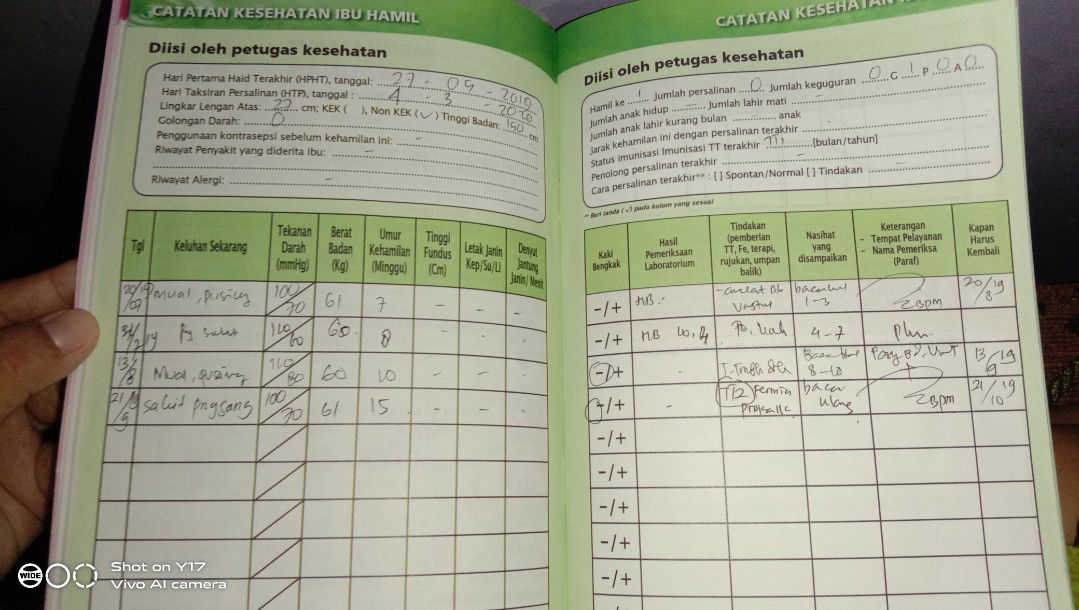 CATATAN KESEHATAN IBU HAMIL
Diisi oleh petugas kesehatan
Hari Pertama Haid Terakhir (HPHT), tanggal: 27 - 05 - 2019
Hari Taksiran Persalinan (HTP), tanggal : 4 - 3 - 2020
Lingkar Lengan Atas: 22 cm; KEK ( ), Non KEK (✓) Tinggi Badan: 150 cm
Golongan Darah: O
Penggunaan kontrasepsi sebelum kehamilan ini: -
Riwayat Penyakit yang diderita ibu: -
Riwayat Alergi: -
Tgl Keluhan Sekarang Tekanan Darah (mmHg) Berat Badan (Kg) Umur Kehamilan (Minggu) Tinggi Fundus (Cm) Letak Janin Kep/Su/Li Denyut Jantung Janin/ Menit
mual, pusing 100/70 61 7 - - -
60 8 - - -
13/8 Mual, pusing 110/80 60 10 - - -
21/9 sakit pinggang 100/70 61 15 - - -
CATATAN KESEHATAN
Diisi oleh petugas kesehatan
Hamil ke 1 Jumlah persalinan 0 Jumlah keguguran 0 G 1 P 0 A 0
Jumlah anak hidup - Jumlah lahir mati -
Jumlah anak lahir kurang bulan - anak
Jarak kehamilan ini dengan persalinan terakhir -
Status imunisasi Imunisasi TT terakhir [bulan/tahun]
Penolong persalinan terakhir -
Cara persalinan terakhir** : [ ] Spontan/Normal [ ] Tindakan -
** Beri tanda (√) pada kolom yang sesuai
Kaki Bengkak Hasil Pemeriksaan Laboratorium Tindakan (pemberian TT, Fe, terapi, rujukan, umpan balik) Nasihat yang disampaikan Keterangan - Tempat Pelayanan - Nama Pemeriksa (Paraf) Kapan Harus Kembali
-/+ HB: 1-3 BPM 20/8 19
-/+ HB 4-7
-/+ - 8-10 13/9 19
-/+ - TT2 baca ulang BPM 21/10 19
-/+
-/+
-/+
-/+
-/+
WIDE
Shot on Y17
Vivo AI camera